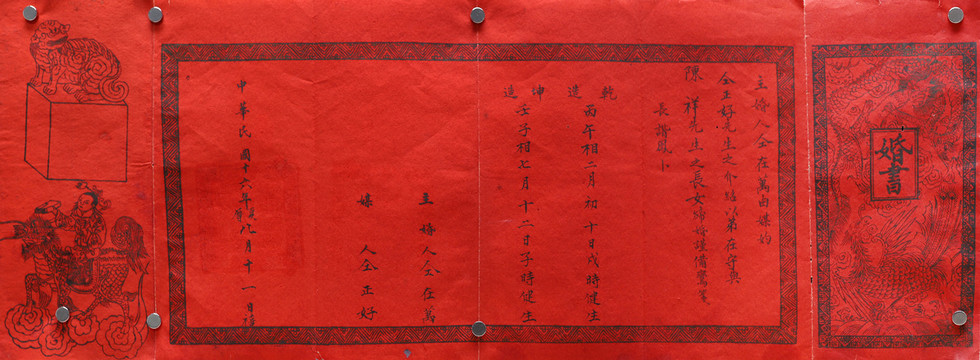 婚書
主婚人仝在萬由媒妁
仝正好先生之介紹以弟在守與
陳 祥先生之長女締婚謹備鸞箋
長揩鳳卜
乾造 丙午相二月初十日戌時健生
坤造 壬子相七月十二日子時健生
主婚人仝在萬
媒人仝正好
中華民國十六年 八月十一日